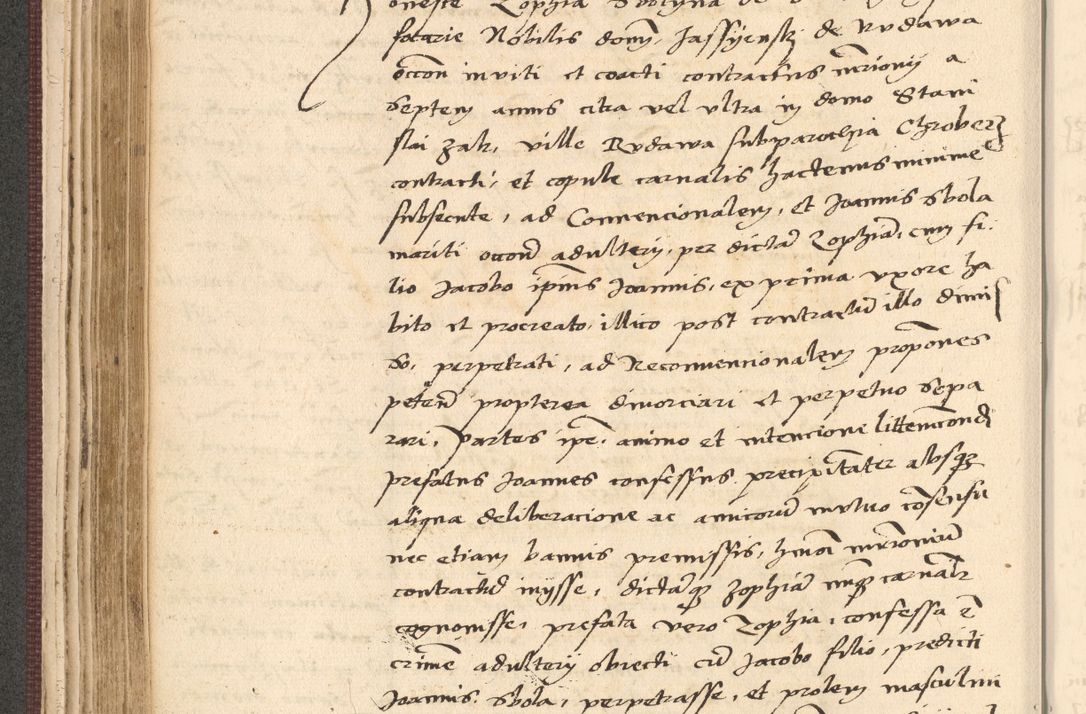 oneste Zophia Sbolyna de
fotarie Nobilis domj Jassyenskj de Rudawa
occon inviti et coacti contractus mrionij a
septem annis citra vel vltra in domo Stani
slai Zak, ville Rudawa subparochia Chrober
contracti, et copule carnalis hactenus minime
subsecute, ad Conuencionalem, et Joannis Sbola
mariti occone adulterij, per dictam Zophiam, cum fi
lio Jacobo ipius Joannis, ex prima vxore ha
bito et procreato, illico post contractum illo dimis
so, perpetrati, ad Reconuencionalem propones
peten propterea diuorciari et perpetuo sepa
rari, Partes ipe, animo et intencione
prefatus Joannes confessus precipitanter absque
aliqua deliberacione ac amicorum mutuo consensu
nec etiam bannis premissis, hmoi mrimonium
contractum inijsse, dictamque Zophiam nunq carnalr
cognouisse, prefata vero Zophia, confessa est
crimen adulterij obiecti cum Jacobo filio, predicti
Joannis Sbola, perpetrasse, et prolem masculini